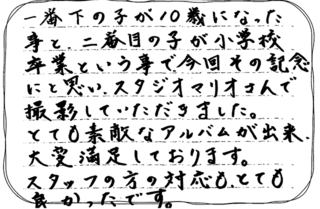 一番下の子が10歳になった
事と、二番目の子が小学校
卒業という事で、今回その記念
にと思い、スタジオマリオさんで
撮影していただきました。
とても素敵なアルバムが出来、
大変満足しております。
スタッフの方の対応も、とても
良かったです。